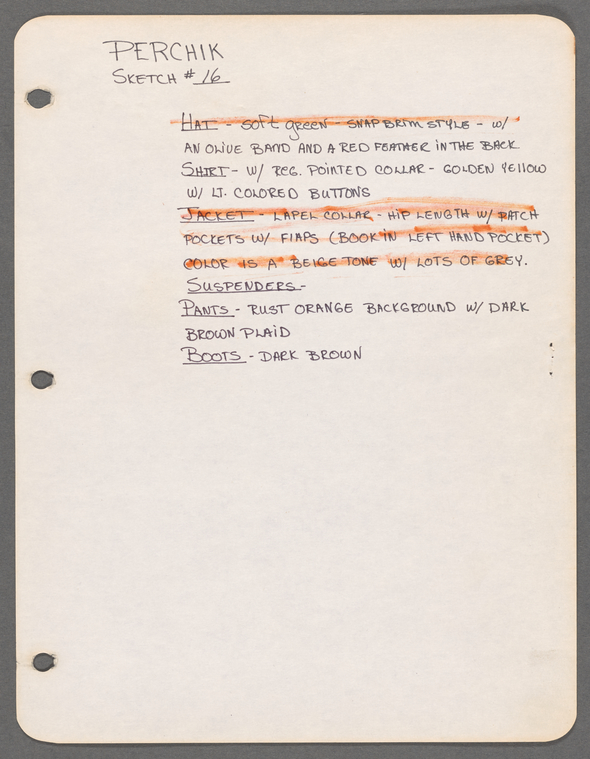 PERCHIK
SKETCH # 16
HAT - soft green - SNAP BRIM STYLE - W/
AN OLIVE BAND AND A RED FEATHER IN THE BACK
SHIRT - W/ REG. POINTED COLLAR - GOLDEN YELLOW
W/ LT. COLORED BUTTONS
JACKET - LAPEL COLLAR - HIP LENGTH W/ PATCH
POCKETS W/ FLAPS (BOOK IN LEFT HAND POCKET)
COLOR IS A BEIGE TONE W/ LOTS OF GREY.
SUSPENDERS -
PANTS - RUST ORANGE BACKGROUND W/ DARK
BROWN PLAID
BOOTS - DARK BROWN